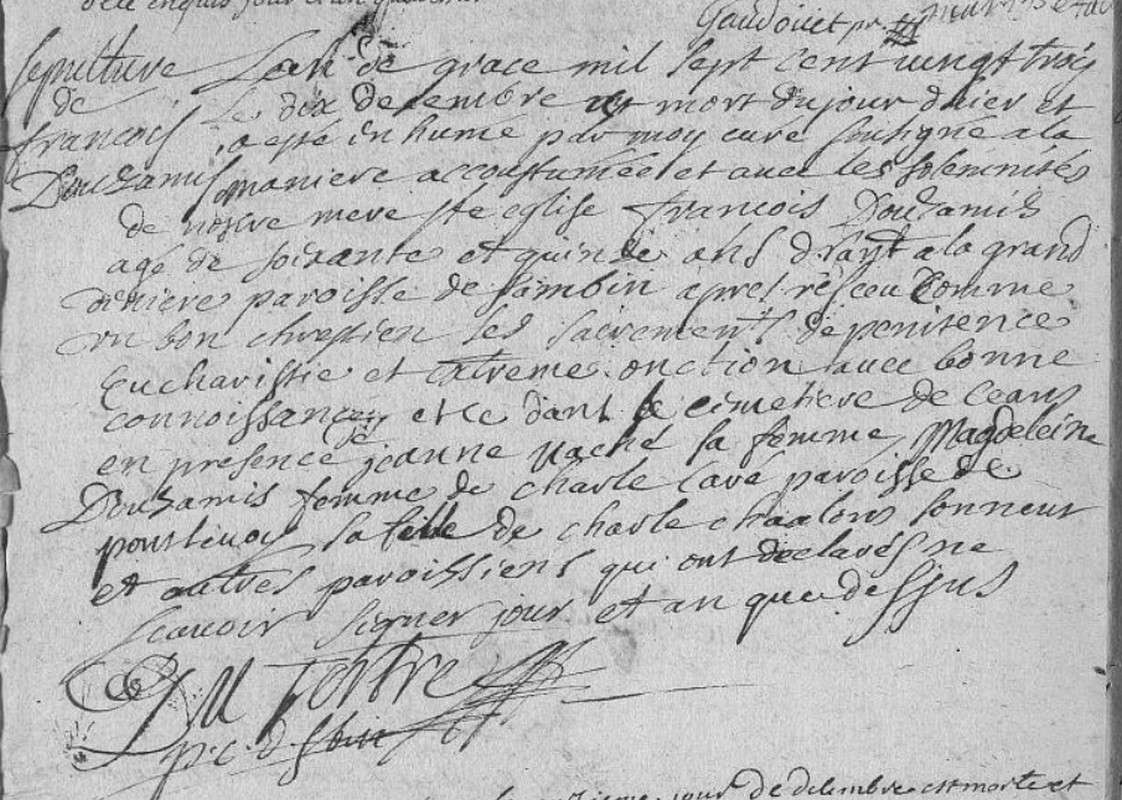 Gaudouet pr
sepulture
de
francois
Douzamis
Lan de grace mil sept cent vingt trois
Le dix decembre est mort du jour dhier et
a esté in humé par moy curé soussigné a la
maniere accoustumée et avec les solemnités
de nostre mere ste eglise francois Douzamis
agé de soixante et quinze ans a la grand
paroisse de sambin apres resceu comme
un bon chrestien les sacrements de penitence
Eucharistie et extreme onction avec bonne
connoissance et ce dans le cimetiere de ceans
en presence de jeanne vaché sa femme Magdeleine
Douzamis femme de charle cavé paroisse de
pontlevoy la fille de charle chaalons sonneur
et autres paroissiens qui ont declarés ne
scavoir signer jour et an que dessus
Du Tertre
p. c. d.
jour de decembre est morte et